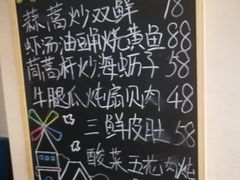 蒜蒿炒双鲜 18
虾汤油面焗烧黄鱼 88
茼蒿杆炒海蛎子 58
牛腿瓜炖扇贝肉 48
三鲜皮肚 58
酸菜五花肉炖